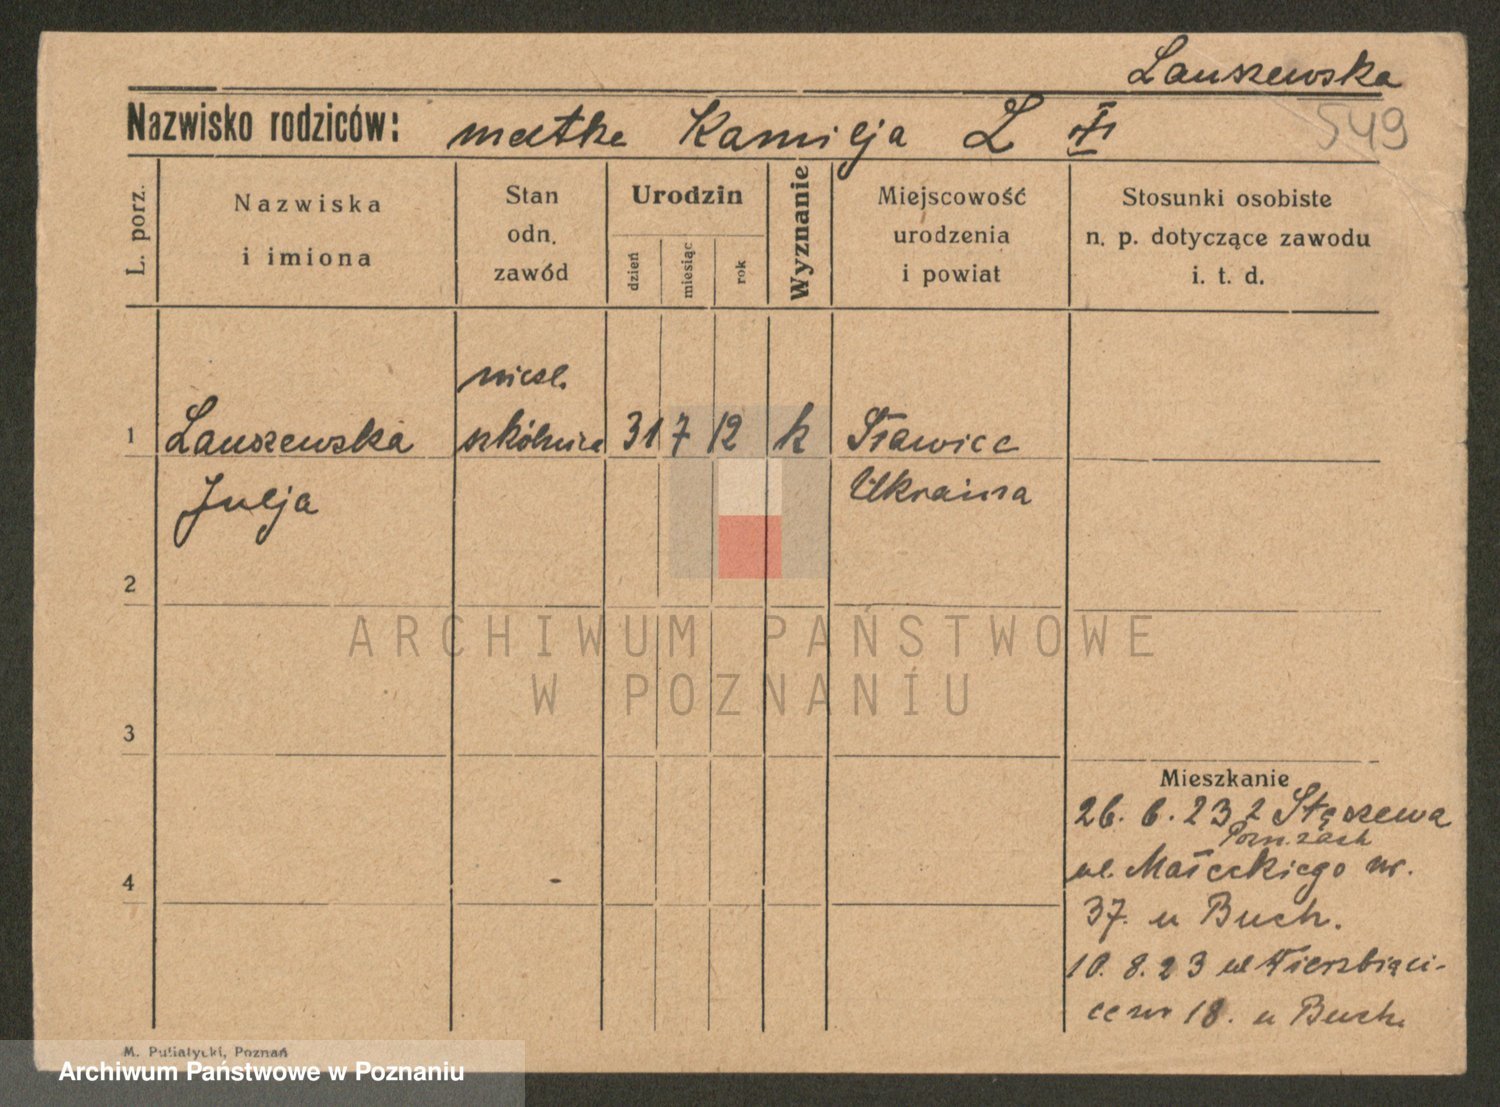 Lauszewska
549
Nazwisko rodziców: matka Kamilja Ł
L. porz.
Nazwiska
i imiona
Stan
odn.
zawód
Urodzin
dzień
miesiąc
rok
Wyznanie
Miejscowość
urodzenia
i powiat
Stosunki osobiste
n. p. dotyczące zawodu
i. t. d.
niesl.
1 Lauszewska szkólnica 31 7 12 k Sławice
Julja Ukraina
2
3
4
ARCHIWUM PAŃSTWOWE
W POZNANIU
Mieszkanie
26. 6. 23 z Stęszewa
ul. Małeckiego nr.
37. u Buch.
10. 8. 23 ul Wierzbięci-
ce nr 18. u Buch.
M. Putiatycki, Poznań
Archiwum Państwowe w Poznaniu